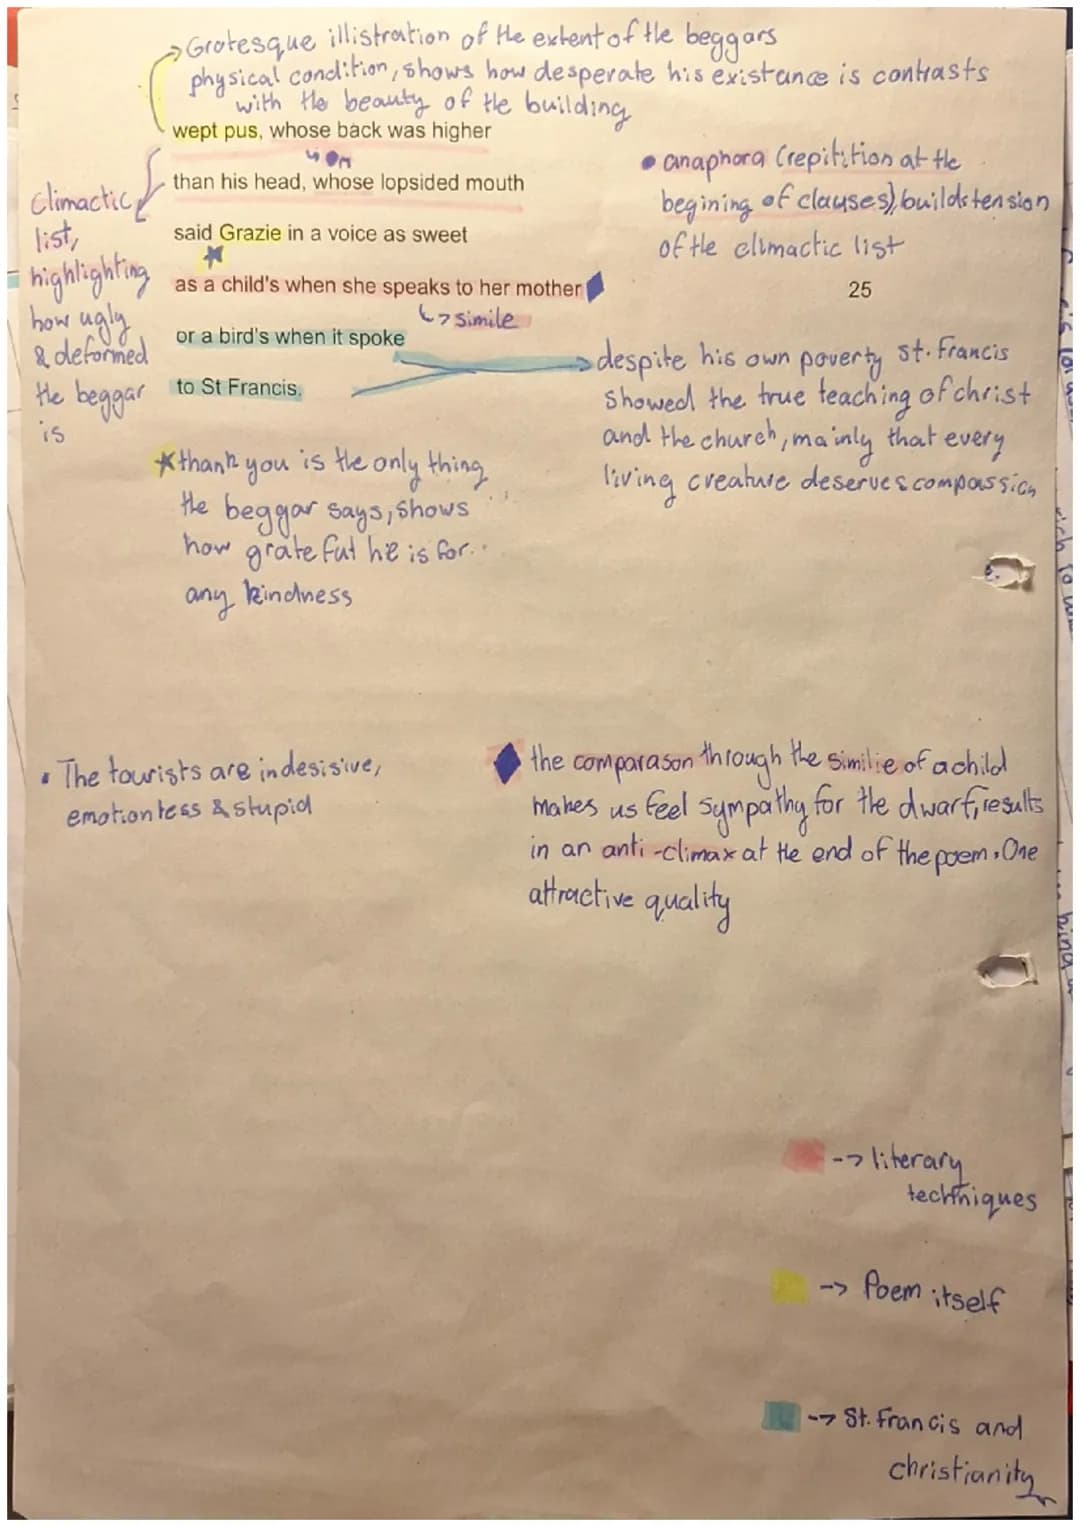 Grotesque illistration of the extent of the beggars
physical condition, shows how desperate his existance is contrasts
with the beauty of the building
wept pus, whose back was higher
than his head, whose lopsided mouth
said Grazie in a voice as sweet
as a child's when she speaks to her mother
25
↳ simile
or a bird's when it spoke
to St Francis.
Climactic
list,
highlighting
how ugly
& deformed
the beggar
is
• anaphora (repitition at the
begining of clauses), builds tension
of the climactic list
despite his own poverty St. Francis
showed the true teaching of christ
and the church, mainly that every
living creature deserves compassion
★ thank you is the only thing
the beggar says, shows
how grateful he is for
any kindness
• The tourists are indesisive,
emotionless & stupid
◆ the comparason through the similie of a child
makes us feel sympathy for the dwarf, results
in an anti-climax at the end of the poem. One
attractive quality
-> literary
techniques
-> Poem itself
-> St. Francis and
christianity